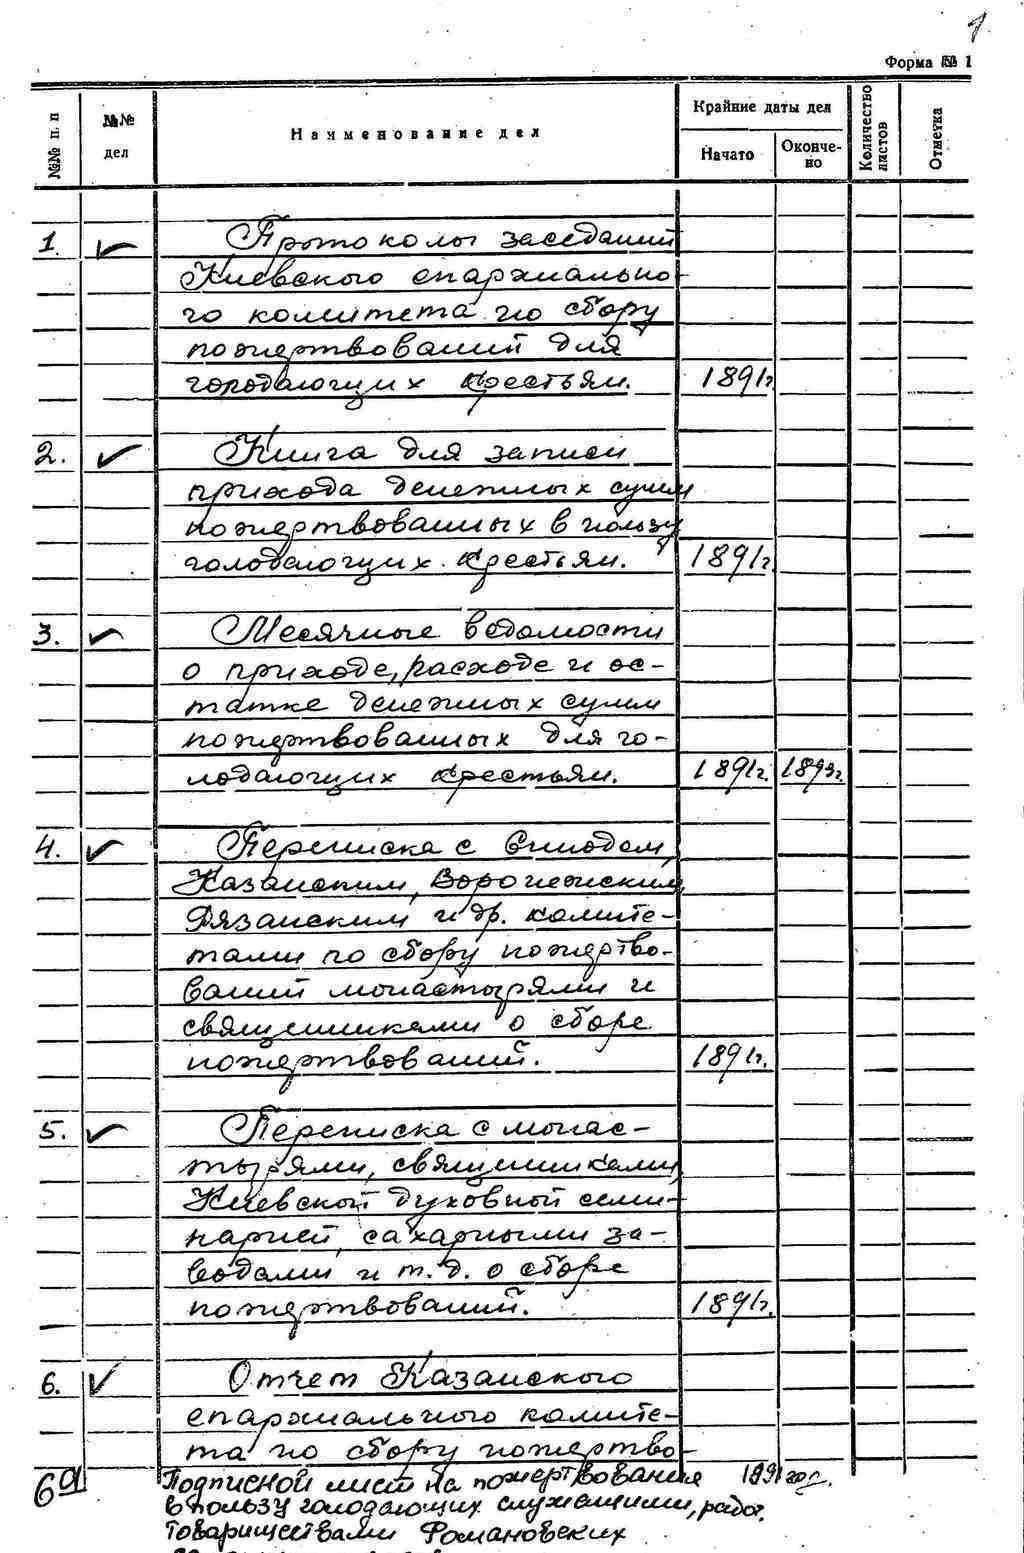 1
Форма № 1
№№ п. п
№№ дел
Наименование дел
Крайние даты дел
Начато
Окончено
Количество листов
Отметка
1. Протоколы заседаний
Киевского епархиально-
го комитета по сбору
пожертвований для
голодающих крестьян. 1891г.
2. Книга для записи
прихода денежных сумм
пожертвованных в пользу
голодающих крестьян. 1891г.
3. Месячные ведомости
о приходе, расходе и ос-
татке денежных сумм
пожертвованных для го-
лодающих крестьян. 1891г. 1893г.
4. Переписка с Синодом,
Казанским, Воронежским
Рязанским и др. комите-
тами по сбору пожертво-
ваний монастырями и
священниками о сборе
пожертвований. 1891г.
5. Переписка с монас-
тырями, священниками,
Киевской духовной семи-
нарией, сахарными за-
водами и т.д. о сборе
пожертвований. 1891г.
6. Отчет Казанского
епархиального комите-
та по сбору пожертво-
6а Подписной лист на пожертвования 1891 год.
в пользу голодающих служащими, рабоч.
товариществами Романовских